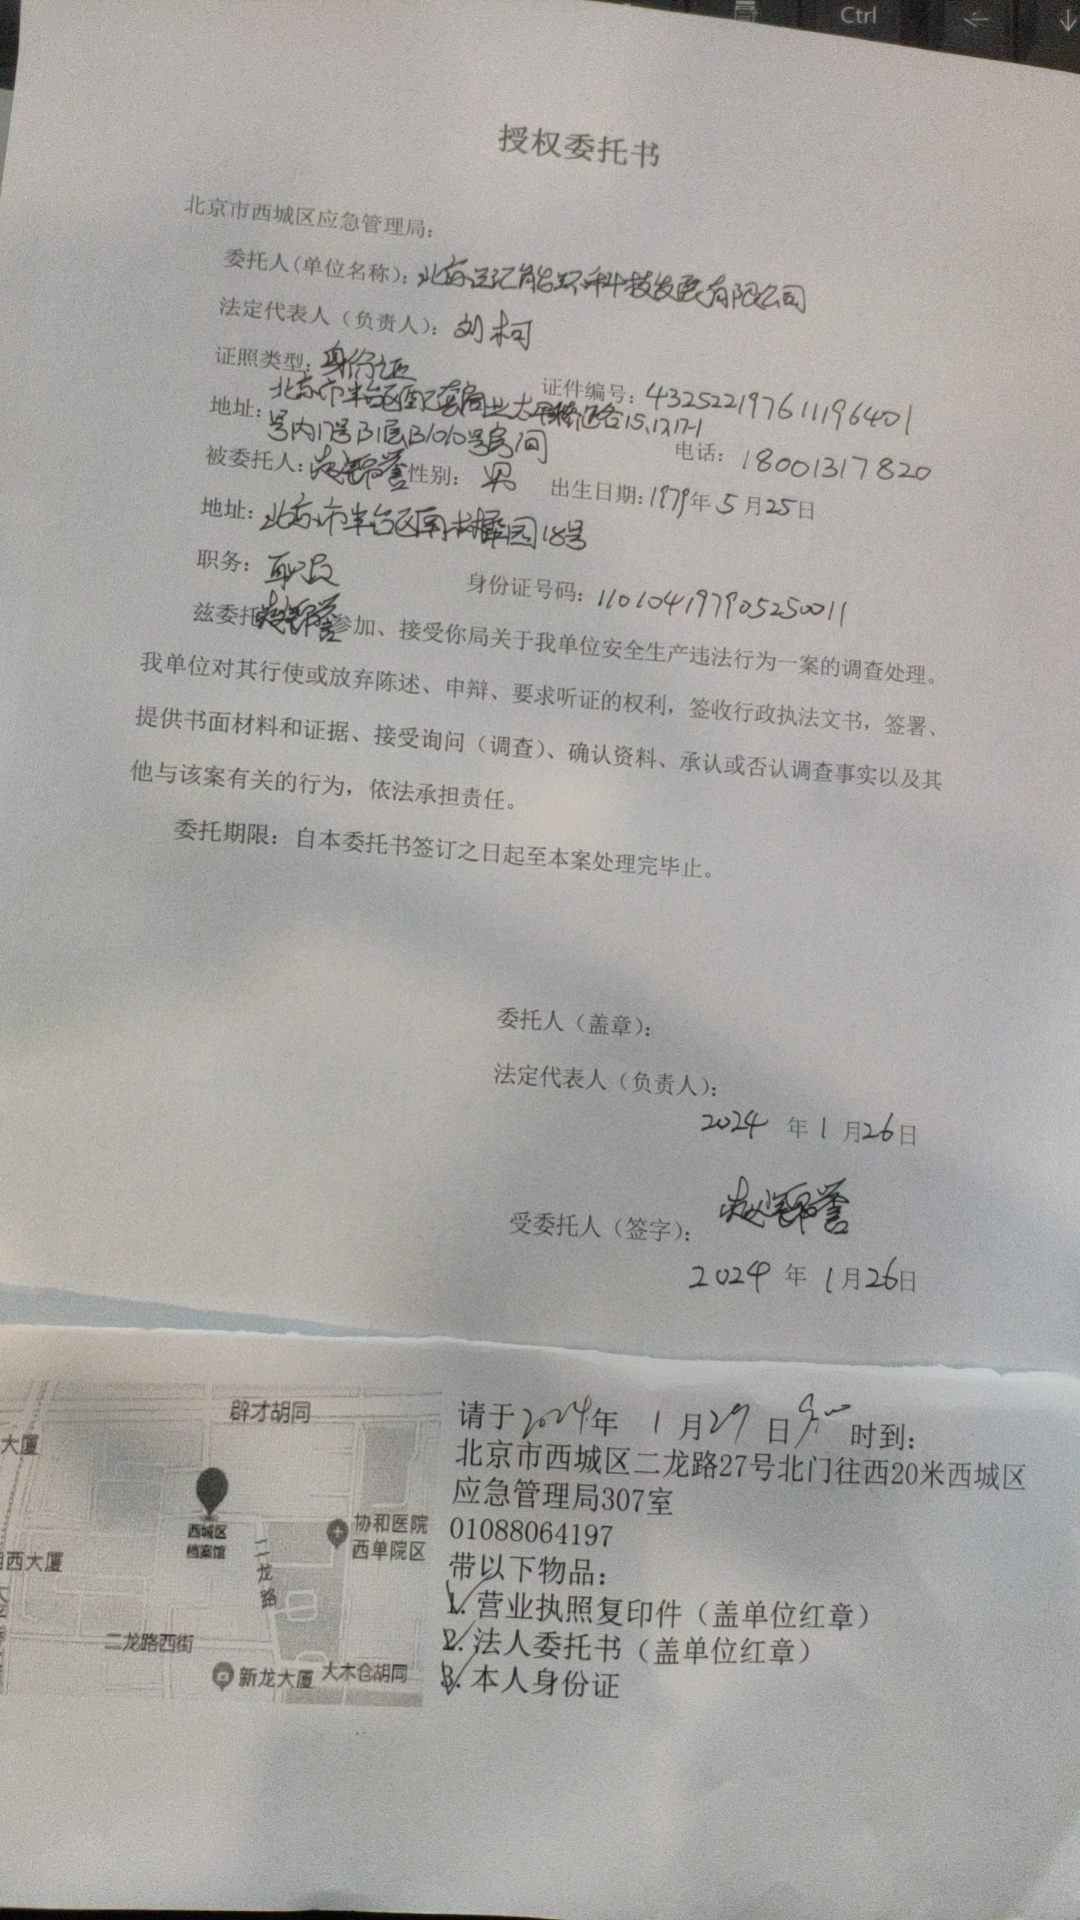 Ctrl
授权委托书
北京市西城区应急管理局:
委托人(单位名称): 北京 汇能环科技发展有限公司
法定代表人(负责人): 刘柯
证照类型: 身份证 证件编号: 432522197611196401
地址: 北京市丰台区 商业 路15,17,17-1
号内17号B1层B1010号房间 电话: 18001317820
被委托人: 赵 誉 性别: 男 出生日期: 1979年5月25日
地址: 北京市丰台区 园18号
职务: 职员 身份证号码: 110104197905250011
兹委托赵 誉参加、接受你局关于我单位安全生产违法行为一案的调查处理。
我单位对其行使或放弃陈述、申辩、要求听证的权利，签收行政执法文书，签署、
提供书面材料和证据、接受询问（调查）、确认资料、承认或否认调查事实以及其
他与该案有关的行为，依法承担责任。
委托期限：自本委托书签订之日起至本案处理完毕止。
委托人（盖章）：
法定代表人（负责人）：
2024 年 1 月26日
受委托人（签字）： 赵 誉
2024 年 1月26日
请于2024年 1月29日9:00时到：
北京市西城区二龙路27号北门往西20米西城区
应急管理局307室
01088064197
带以下物品：
1. 营业执照复印件（盖单位红章）
2. 法人委托书（盖单位红章）
3. 本人身份证
辟才胡同
大厦
西城区
档案馆
协和医院
西单院区
二龙路
西大厦
二龙路西街
新龙大厦
大木仓胡同